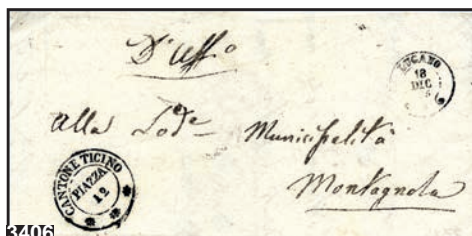 D'Uff.o
LUGANO
18
DEC
Alla Lod.e Municipalità
Montagnola
CANTONE TICINO
PIAZZA
12
3406